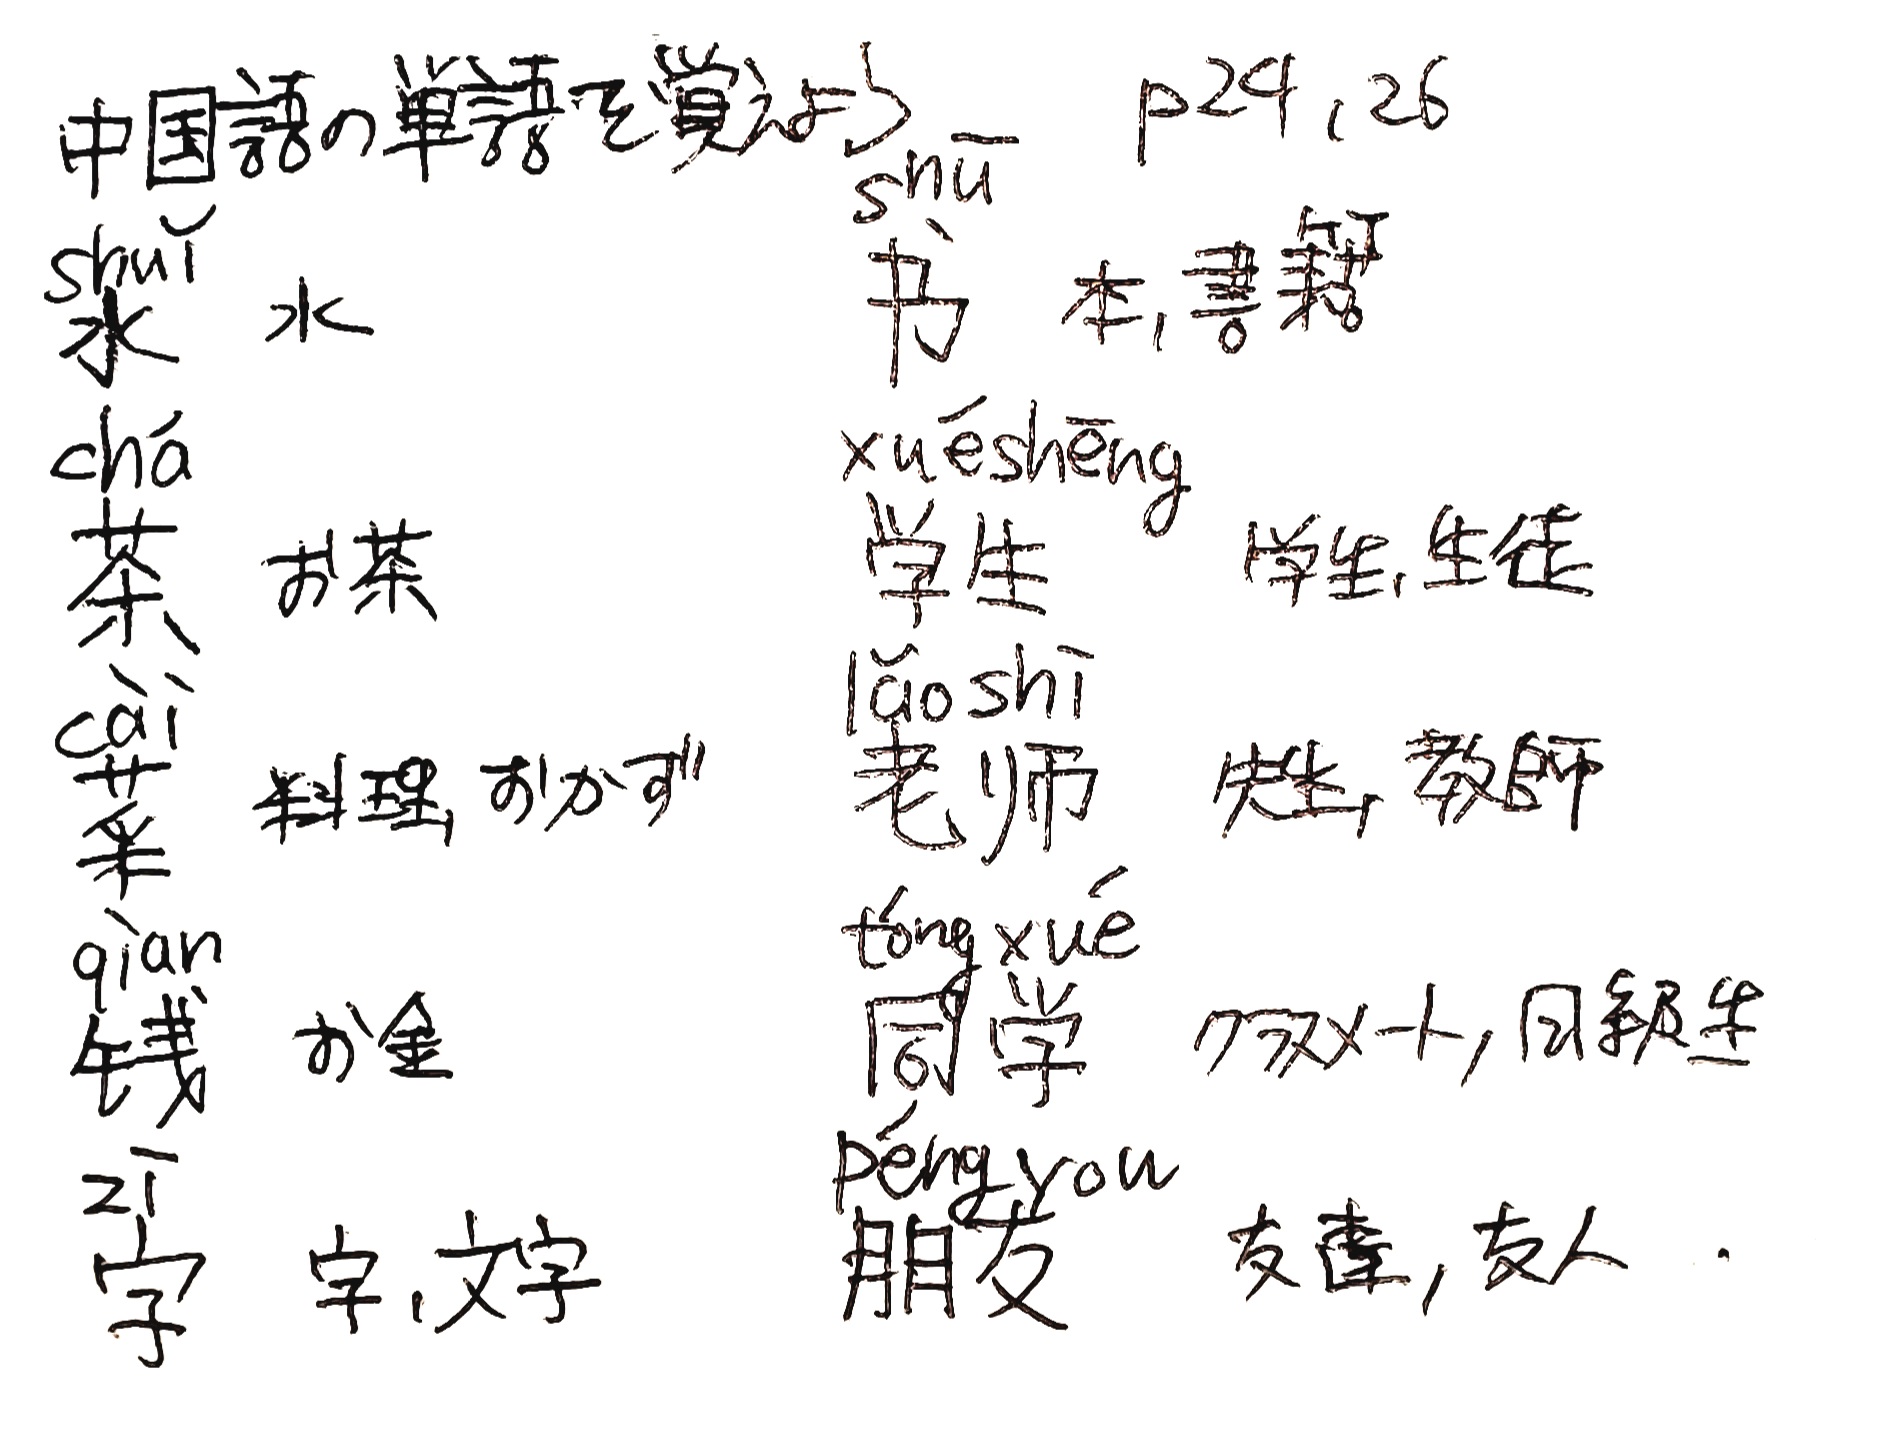 中国語の単語を覚えよう p24,26
shuǐ
水 水
chá
茶 お茶
cài
菜 料理,おかず
qìan
钱 お金
zī
字 字,文字
shū
书 本,書籍
xuéshēng
学生 学生,生徒
lǎoshī
老师 先生,教師
tóngxué
同学 クラスメート,同級生
péngyou
朋友 友達,友人